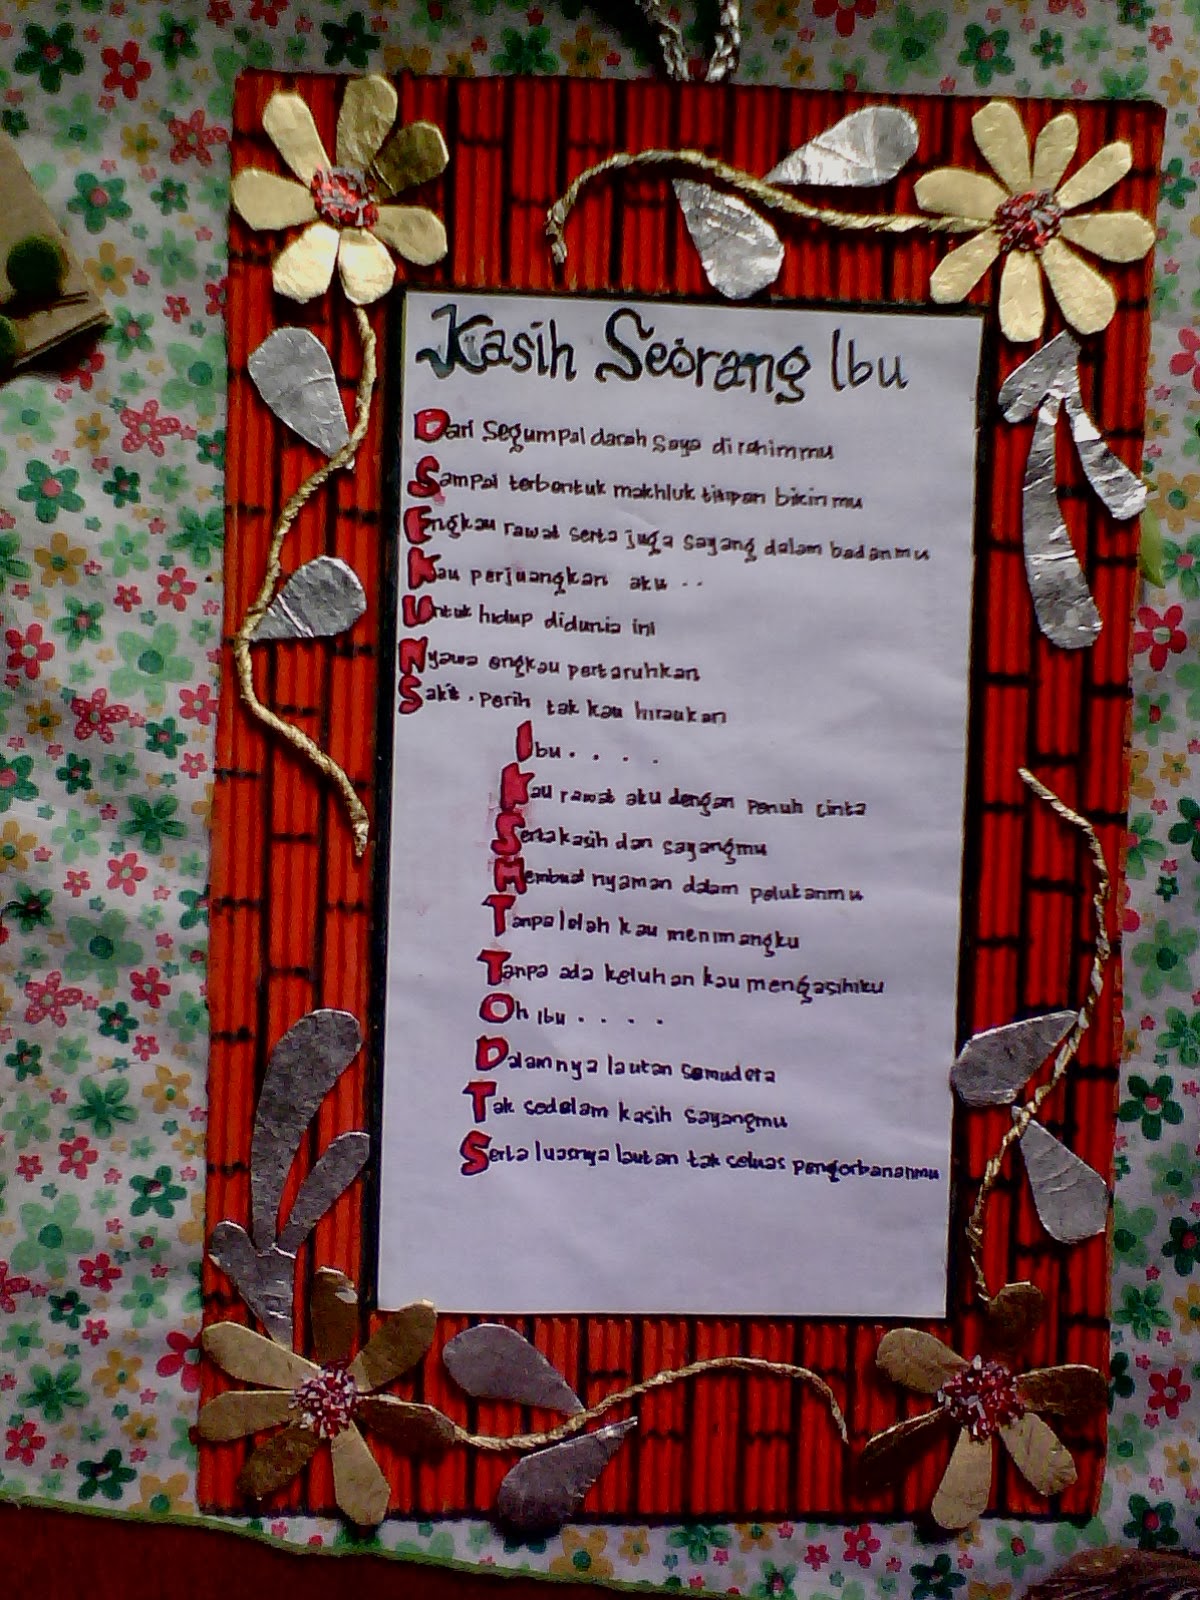 Kasih Seorang Ibu
Dari segumpal darah saya di rahimmu
Sampai terbentuk makhluk titipan bikinmu
Engkau rawat serta juga sayang dalam badanmu
Kau perjuangkan aku . .
Untuk hidup didunia ini
Nyawa engkau pertaruhkan
Sakit . perih tak kau hiraukan
Ibu . . . .
Kau rawat aku dengan penuh cinta
Serta kasih dan sayangmu
Membuat nyaman dalam pelukanmu
Tanpa lelah kau menimangku
Tanpa ada keluhan kau mengasihiku
Oh ibu . . . .
Dalamnya lautan samudera
Tak sedalam kasih sayangmu
Serta luasnya lautan tak seluas pengorbananmu